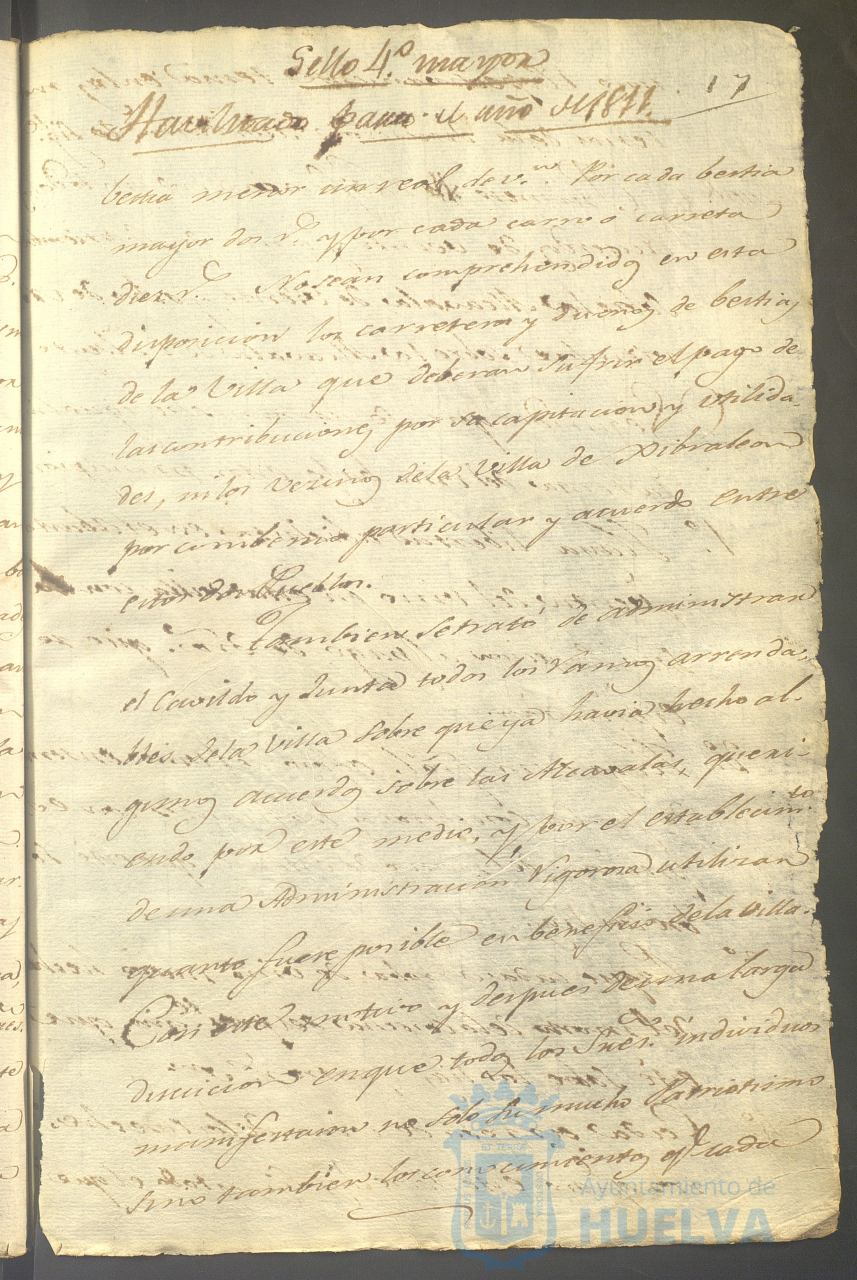 Sello 4.º mayor
17
Havilitado para el año de 1811.
bestia menor un real de v.n Por cada bestia
mayor dos r.s y por cada carro ó carreta
diez r.s No sean comprehendidos en esta
disposicion los carreteros y dueños de bestias
de la Villa que deberan sufrir el pago de
las contribuciones por su capitacion y utilida-
des, ni los vezinos de la Villa de Xibraleon
por combenio particular y acuerdo entre
estos dos Pueblos.
Tambien se trató de administrar
el Cavildo y Junta todos los ramos arrenda-
bles de la Villa sobre que ya havia hecho al-
gunos acuerdos sobre las Alcavalas, queri-
endo por este medio, y por el establecim.to
de una Administracion vigorosa utilizar
quanto fuere posible en beneficio de la Villa.
Con este motivo y despues de una larga
discucion en que todos los Sres. individuos
manifestaron no solo su mucho Patriotismo
sino tambien los conocimientos q.e cada
Ayuntamiento de
HUELVA